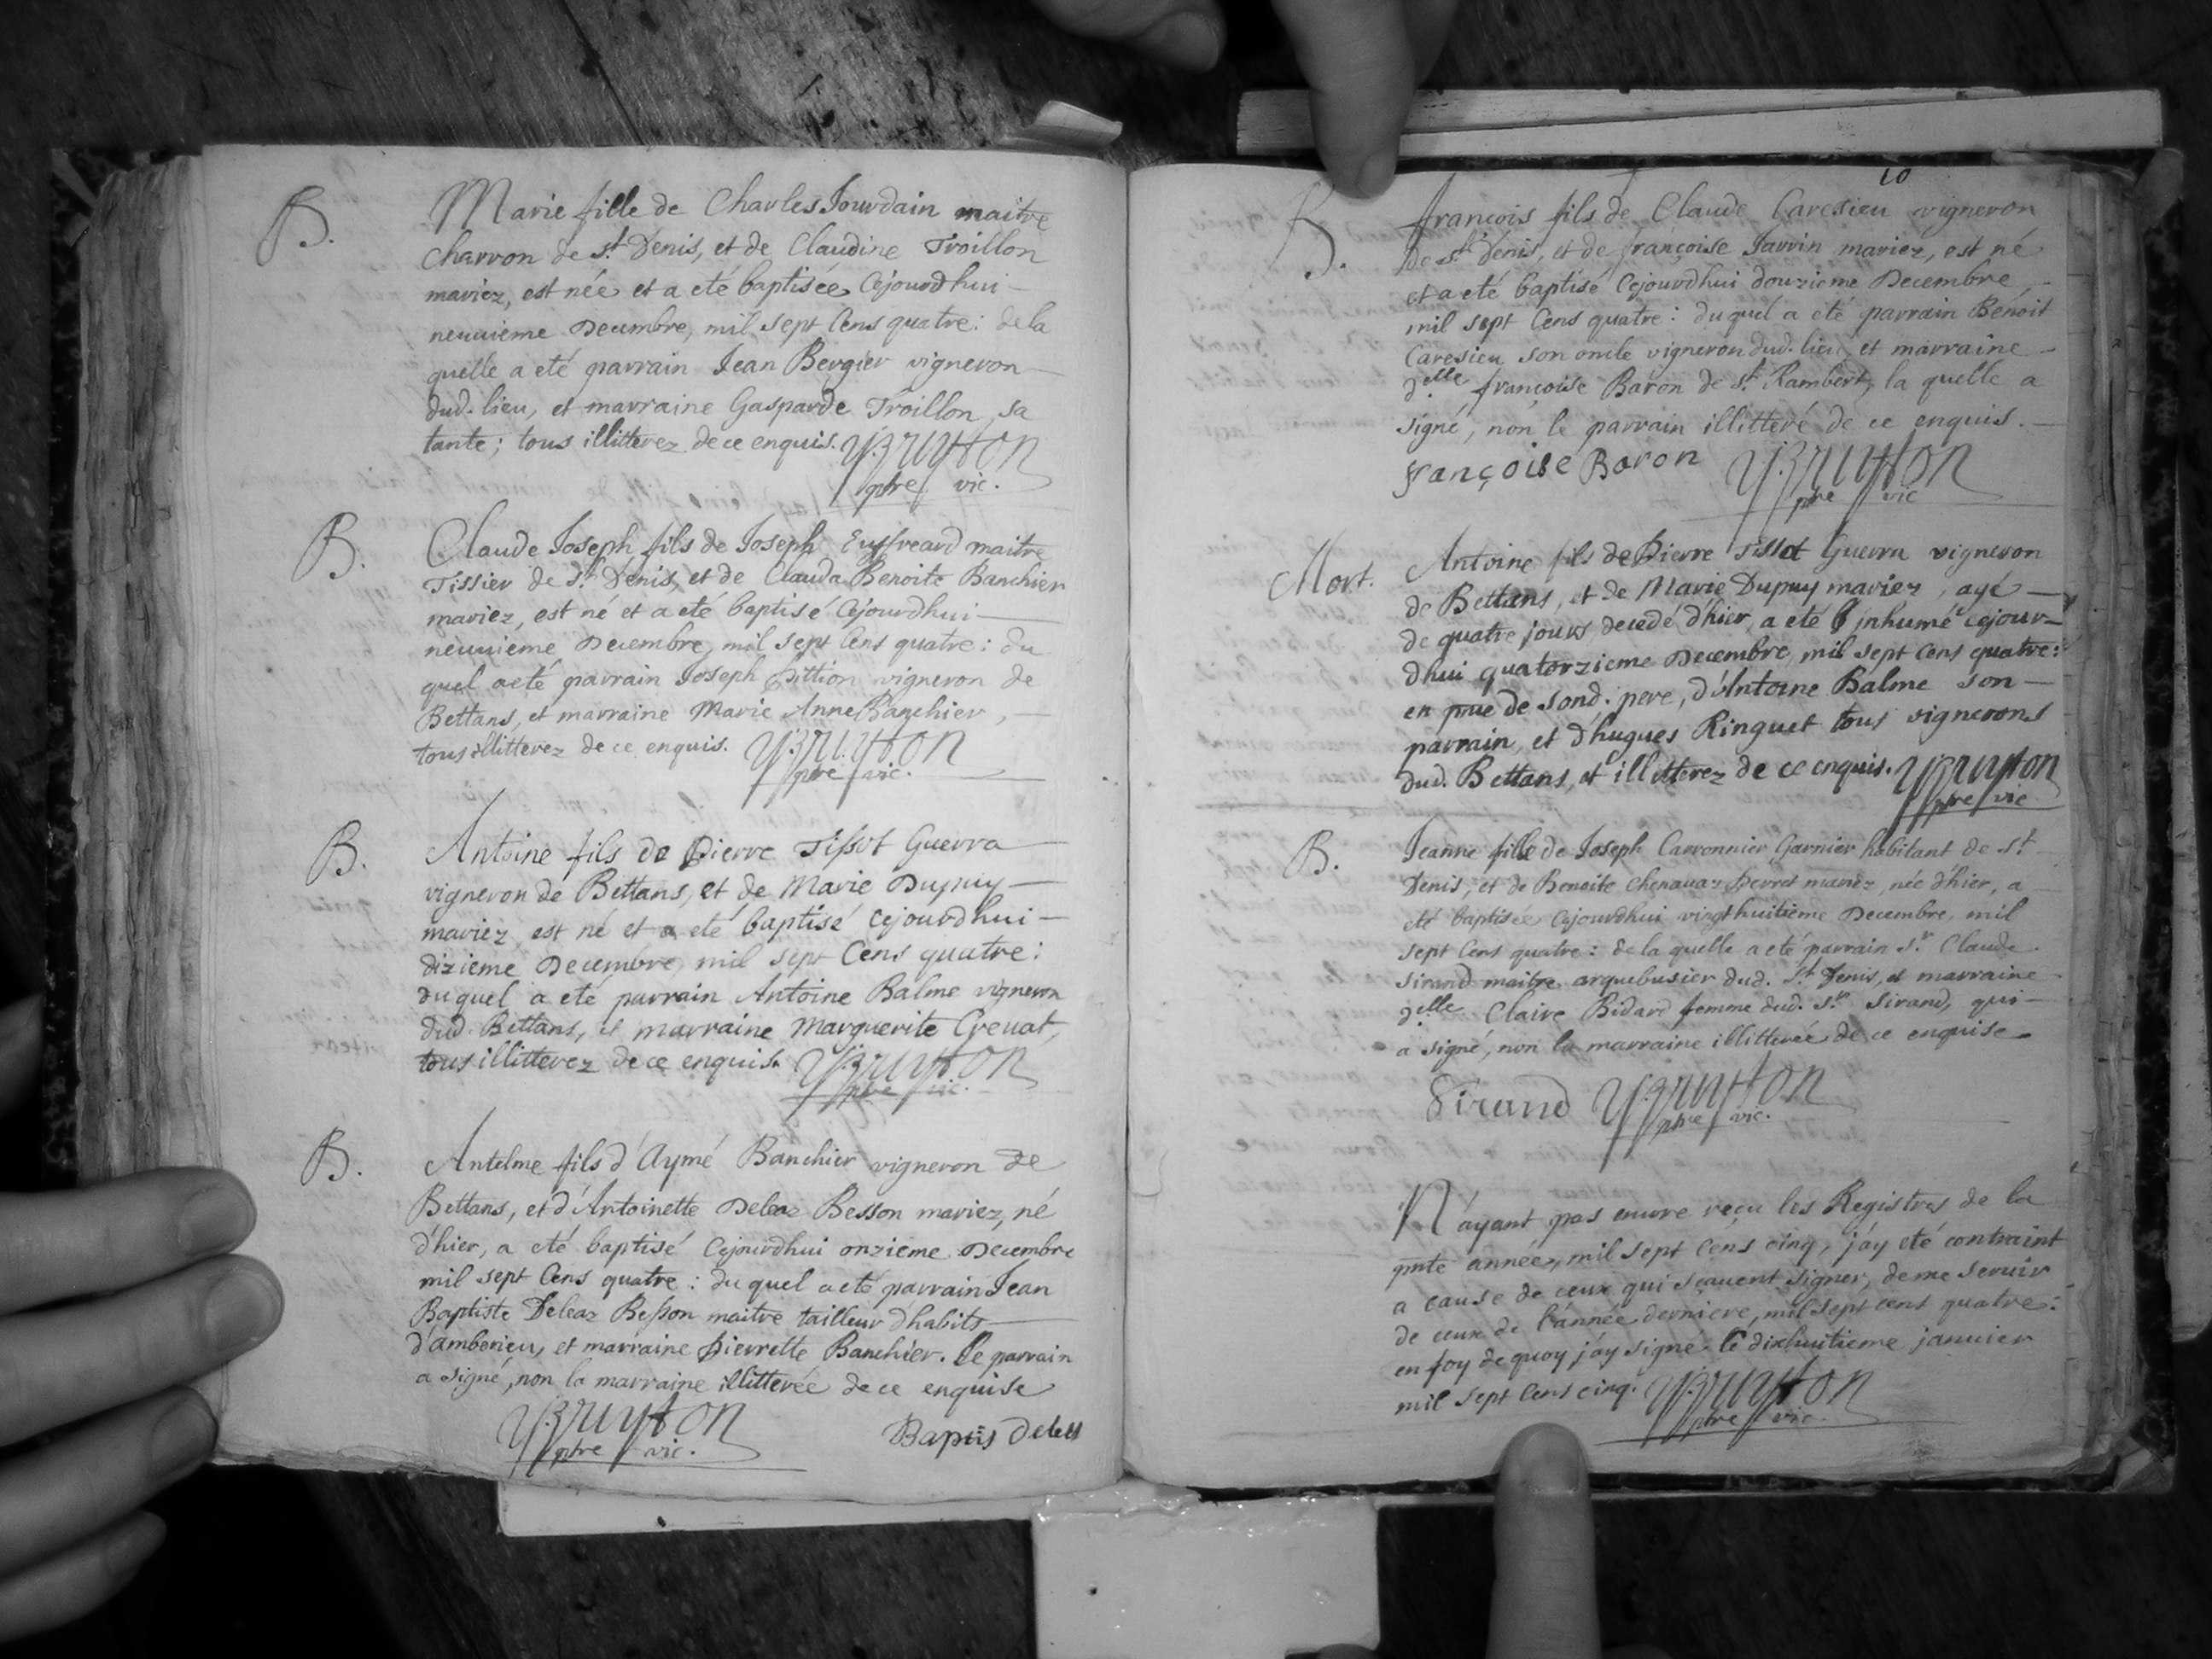 B.
Marie fille de Charles Jourdain maitre
charron de st Denis, et de Claudine Troillon
mariez, est née et a eté baptisée Cejourdhui
neuuieme Decembre, mil sept Cens quatre : dela
quelle a eté parrain Jean Bergier vigneron
dud. lieu, et marraine Gasparde Troillon sa
tante ; tous illitterez de ce enquis. Bruyton
ptre vic.
B.
Claude Joseph fils de Joseph maitre
Tissier de st Denis, et de Clauda Benoite Banchier
mariez, est né et a eté baptisé Cejourdhui
neuuieme Decembre, mil sept Cens quatre : du
quel a eté parrain Joseph Pittion vigneron de
Bettans, et marraine Marie Anne Banchier,
tous illitterez de ce enquis. Bruyton
ptre vic.
B.
Antoine fils de Pierre Tissot Guerra
vigneron de Bettans, et de Marie Dupuy
mariez, est né et a eté baptisé cejourdhui
dizieme Decembre, mil sept Cens quatre :
duquel a eté parrain Antoine Balme vigneron
dud. Bettans, et marraine Marguerite Creuat,
tous illitterez de ce enquis. Bruyton
ptre vic.
B.
Antelme fils d'Aymé Banchier vigneron de
Bettans, et d'Antoinette Deleaz Besson mariez, né
d'hier, a eté baptisé Cejourdhui onzieme Decembre
mil sept Cens quatre : du quel a eté parrain Jean
Baptiste Deleaz Besson maitre tailleur dhabits
d'amberieu, et marraine Pierrette Banchier. Le parrain
a signé, non la marraine illitterée de ce enquise
Bruyton Baptis
ptre vic.
10
B.
françois fils de Claude Caresieu vigneron
de st Denis, et de françoise Jarrin mariez, est né
et a eté baptisé Cejourdhui douzieme Decembre,
mil sept Cens quatre : duquel a eté parrain Benoit
Caresieu son oncle vigneron dud. lieu, et marraine
delle françoise Baron de st Rambert, la quelle a
signé, non le parrain illitteré de ce enquis.
françoise Baron Bruyton
ptre vic
Mort.
Antoine fils de Pierre Tissot Guerra vigneron
de Bettans, et de Marie Dupuy mariez, agé
de quatre jours decedé d'hier, a eté jnhumé cejour-
dhui quatorzieme Decembre, mil sept cens quatre :
en pnce de sond. pere, d'Antoine Balme son
parrain, et d'hugues Ringuet tous vignerons
dud. Bettans, et illitterez de ce enquis. Bruyton
ptre vic
B.
Jeanne fille de Joseph Carronnier Garnier habitant de st
Denis, et de Benoite Chenauaz Perret mariez, née d'hier, a
eté baptisée Cejourdhui vingt huitieme Decembre, mil
sept Cens quatre : de la quelle a eté parrain sr. Claude
Sirand maitre arquebusier dud. st Denis, et marraine
delle Claire Bidard femme dud. sr. Sirand, qui
a signé, non la marraine illitterée de ce enquise
Sirand Bruyton
ptre vic.
N'ayant pas encore reçu les Registres de la
pnte année, mil sept cens cinq, j'ay eté contraint
a cause de ceux qui sçauent signer, de me seruir
de ceux de l'année derniere, mil sept cens quatre :
en foy dequoy j'ay signé le dixhuitieme januier
mil sept Cens cinq. Bruyton
ptre vic.